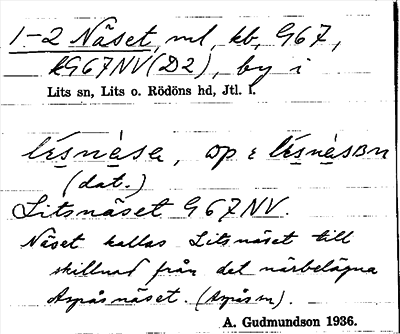 1-2 Näset, ml, kb, G67,
kG67NV(D2), by i
Lits sn, Lits o. Rödöns hd, Jtl. l.
lésnàse, op : lésnàsɒn
(dat.)
Litsnäset G67NV.
Näset kallas Litsnäset till
skillnad från det närbelägna
Aspåsnäset. (Aspås sn).
A. Gudmundson 1936.